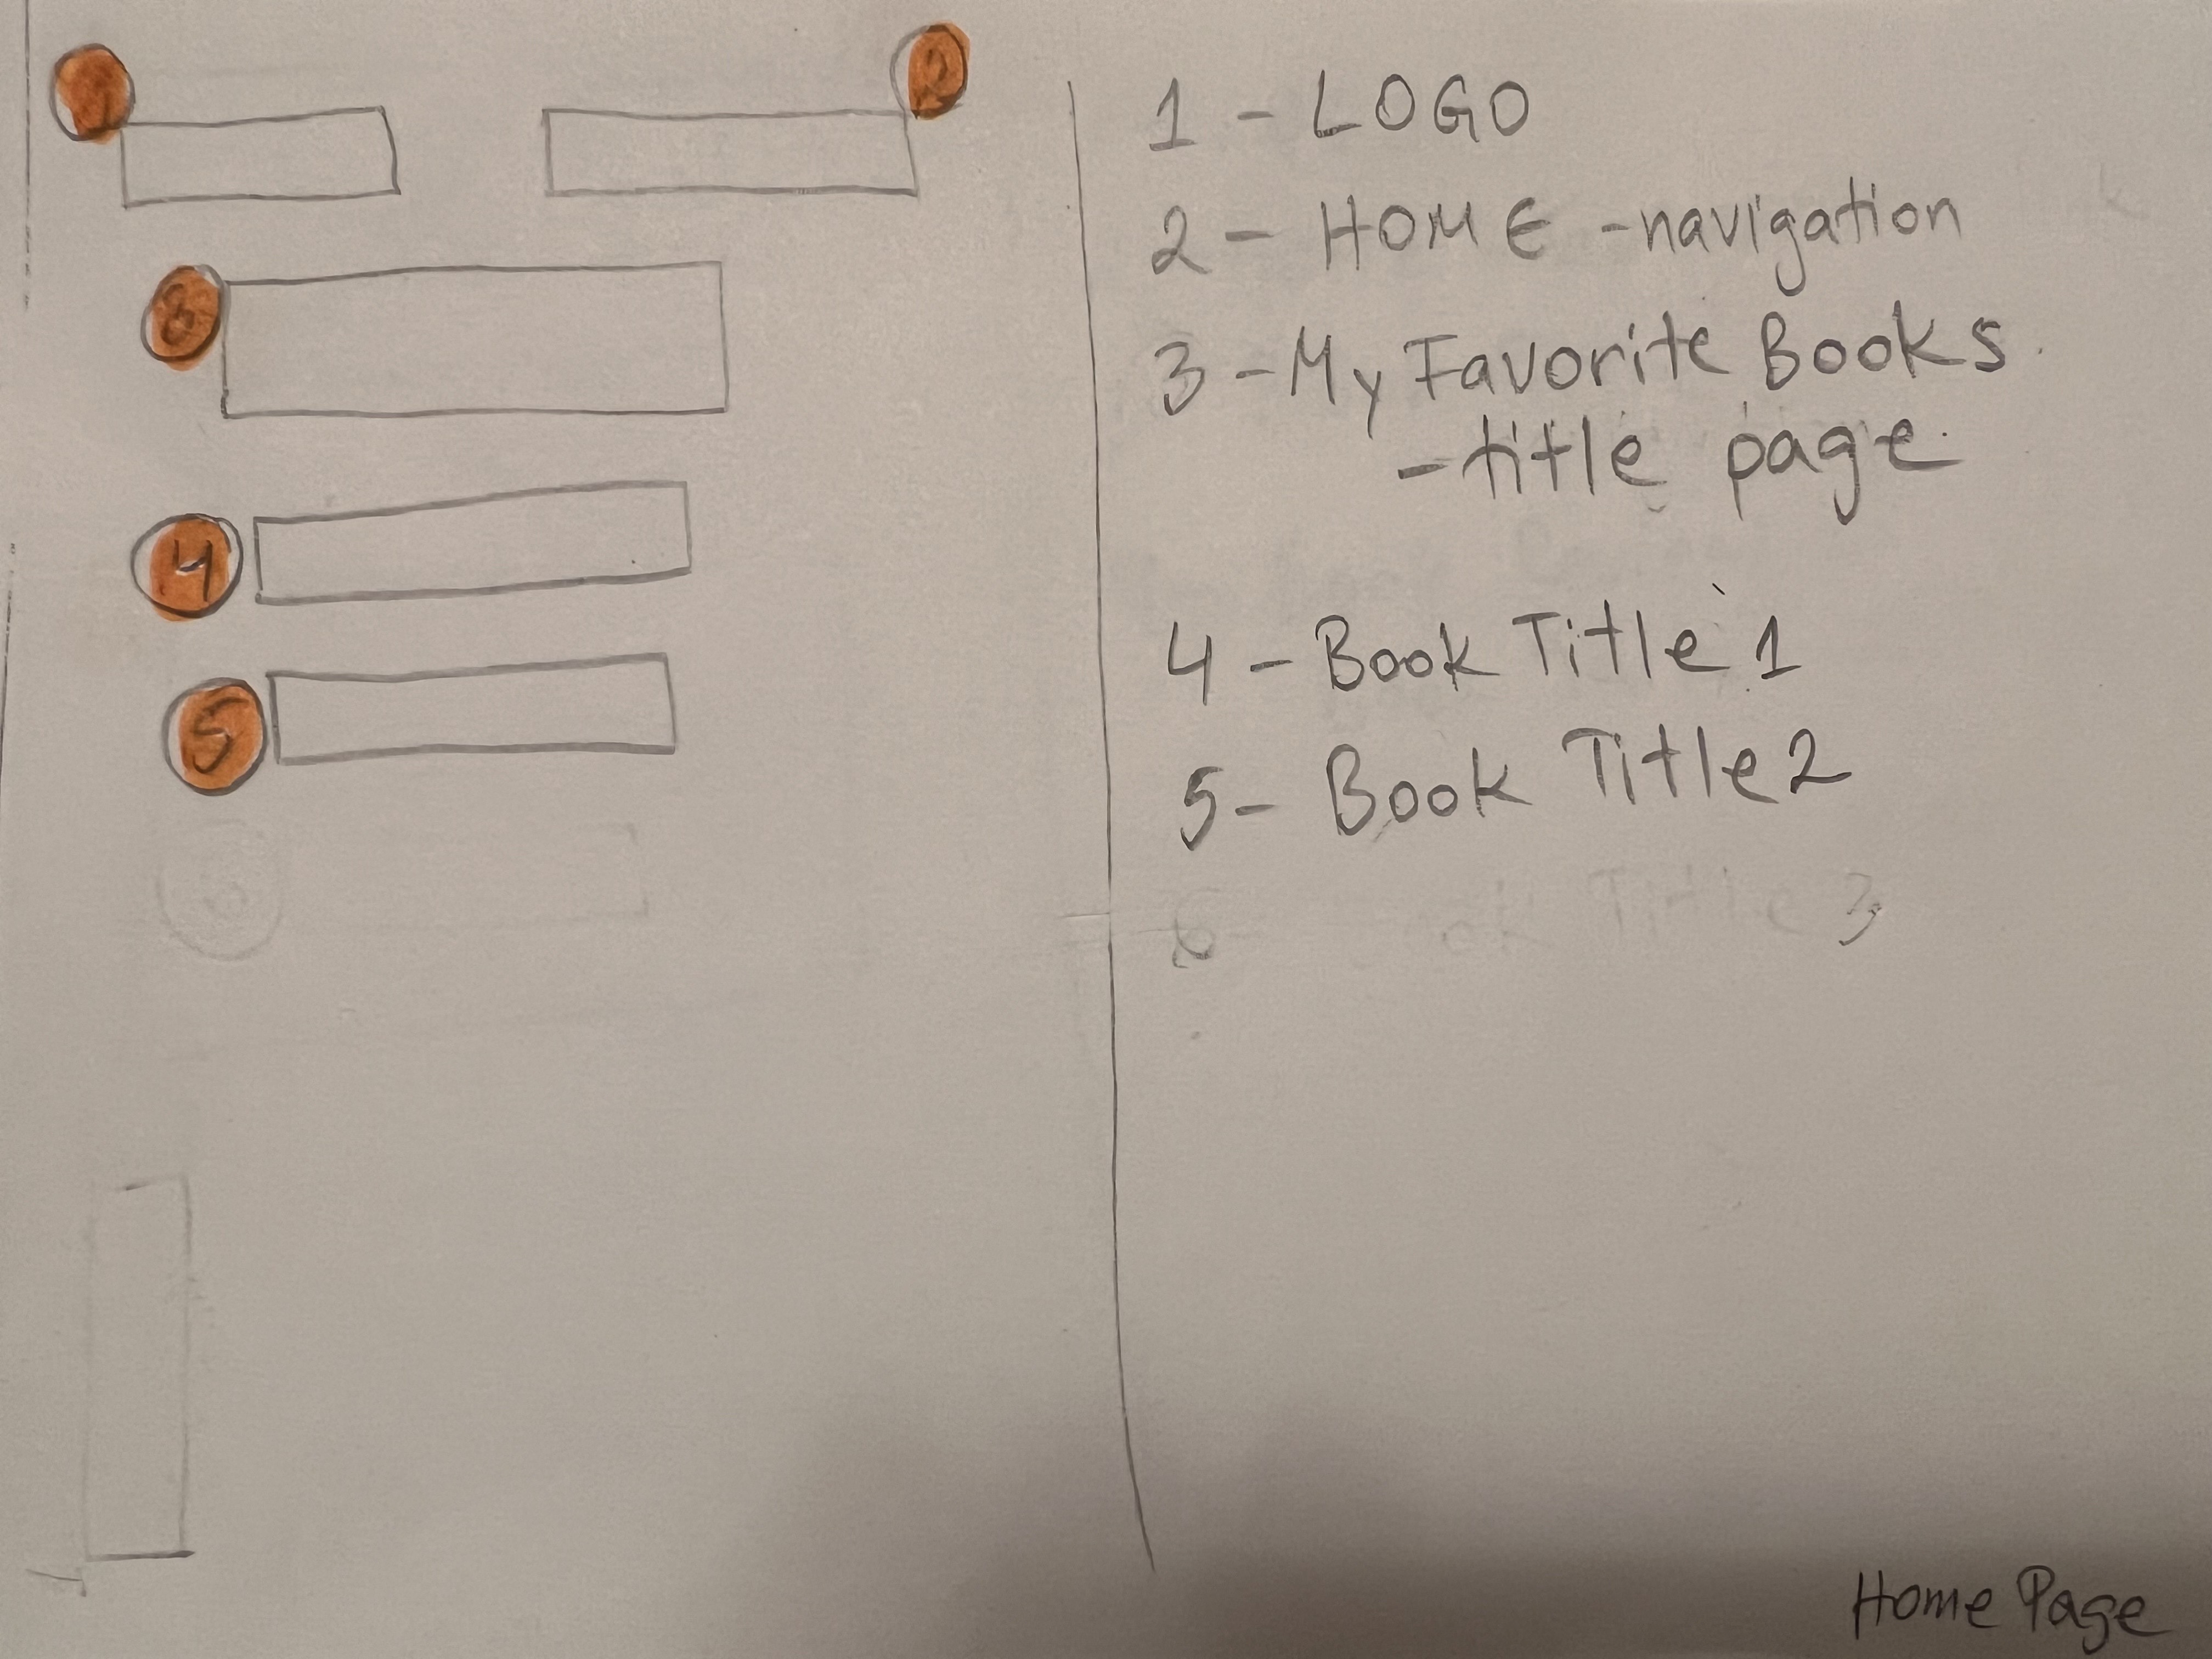 1
2
3
4
5
1 - LOGO
2 - HOME - navigation
3 - My Favorite Books
- title page
4 - Book Title 1
5 - Book Title 2
6 - ok Title 3
Home Page